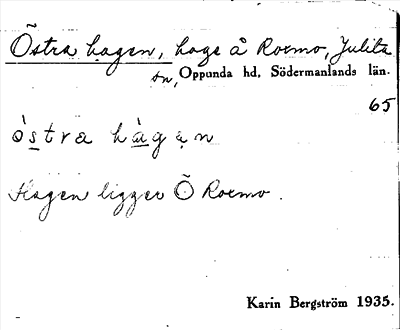 Östra hagen, hage å Roxmo, Julita
sn, Oppunda hd, Södermanlands län.
65
ö̀stra hàgen
Hagen ligger Ö Roxmo.
Karin Bergström 1935.